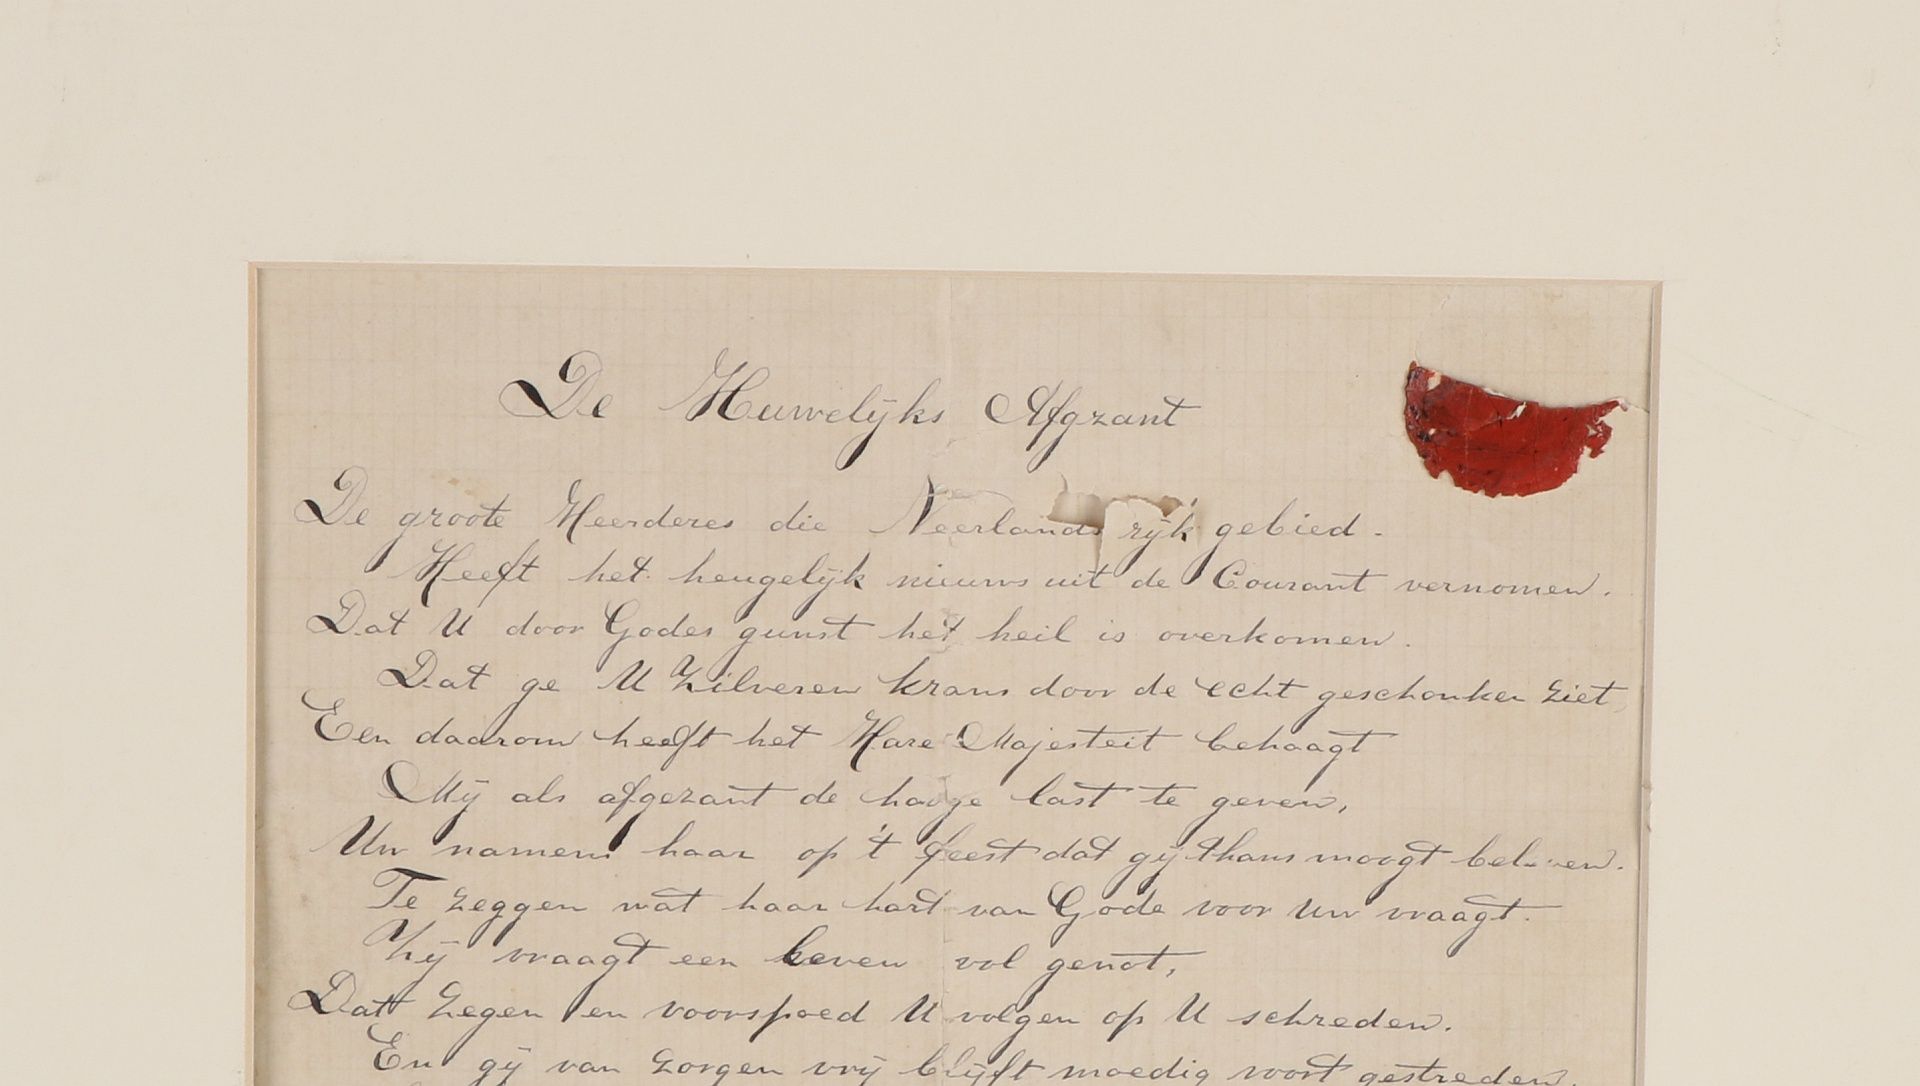 De Huwelijks Afgzant
De groote Heerderes die Neerlands rijk gebied.
Heeft het heugelijk nieuws uit de Courant vernomen.
Dat U door Godes gunst het heil is overkomen.
Dat ge U Zilveren krans door de echt geschonken ziet,
Een daarom heeft het Hare Majesteit behaagt
Mij als afgezant de hooge last te geven,
Uw namens haar op 't feest dat gij thans moogt beleven.
Te zeggen wat haar hart van Gode voor Uw vraagt.
Zij vraagt een leven vol genot,
Dat Zegen en voorspoed U volgen op U schreden.
En gij van zorgen vrij blijft moedig voort gestreden.